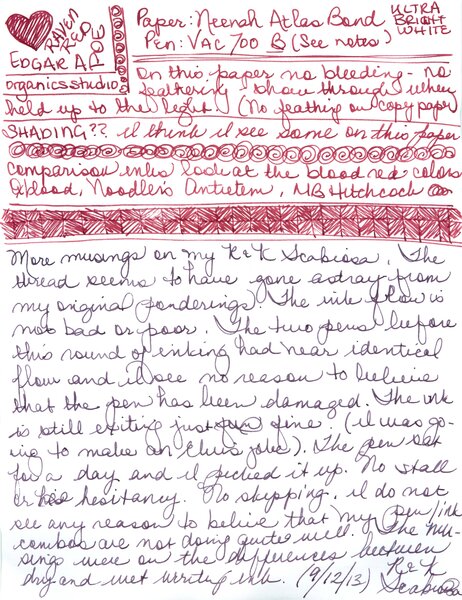 RAVEN
RED
EDGAR A POE
organics studio
Paper: Neenah Atlas Bond ULTRA
BRIGHT
WHITE
Pen: VAC 700 B (See notes)
On this paper no bleeding - no
feathering - show through when
held up to the light (No feathing on copy paper
SHADING?? I think I see some on this paper
Comparison inks look at the blood red colors
Oxblood, Noodler's Antietem, MB Hitchcock
More musings on my R&K Scabiosa. The
thread seems to have gone astray from
my original ponderings. The ink flow is
not bad or poor. The two pens before
this round of inking had near identical
flow and I see no reason to believe
that the pen has been damaged. The ink
is still exiting just fine. (I was go-
ing to make an Elvis joke). The pen sat
for a day and I picked it up. No stall
or hesitancy. No skipping. I do not
see any reason to belive that my pen/ink
combos are not doing quite well. The mu-
sings were on the differences between
dry and wet writing ink. (9/12/13) R&K
Scabiosa